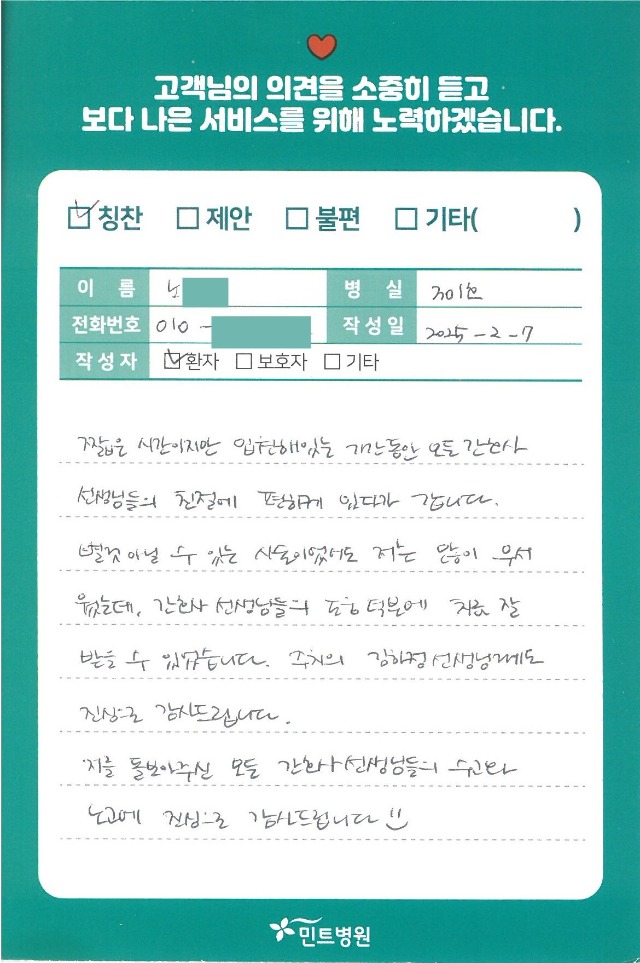 고객님의 의견을 소중히 듣고
보다 나은 서비스를 위해 노력하겠습니다.
칭찬 제안 불편 기타( )
이 름 노 병 실 301호
전화번호 010 - 작성일 2025-2-7
작성자 환자 보호자 기타
짧은 시간이지만 입원해있는 기간동안 모든 간호사
선생님들의 친절에 편하게 있다가 갑니다.
별것 아닐 수 있는 시술이었어도 저는 많이 무서
웠는데, 간호사 선생님들의 도움 덕분에 치료 잘
받을 수 있었습니다. 주치의 김하정 선생님께도
진심으로 감사드립니다.
저를 돌보아주신 모든 간호사 선생님들의 수고와
노고에 진심으로 감사드립니다
민트병원